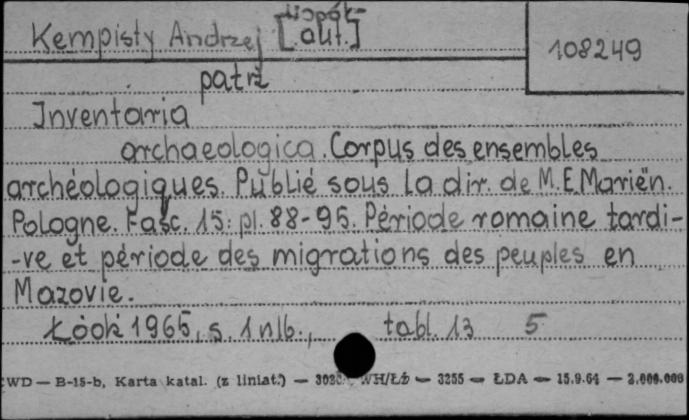 Kempisty Andrzej [współ-
aut.]
108249
patrz
Inventaria
archaeologica. Corpus des ensembles
archéologiques. Publié sous la dir. de M.E. Mariën.
Pologne. Fasc. 15: pl. 88-95. Période romaine tardi-
-ve et période des migrations des peuples en
Mazovie.
Łódź 1965, s. 1 nlb., tabl. 13 5
WD — B-15-b, Karta katal. (z liniat.) — WH/Łż — 3255 — ŁDA — 15.9.64 — 2.000.000